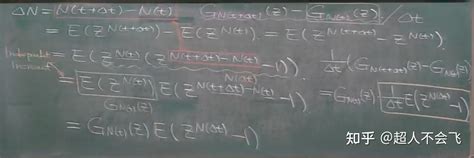 ΔN = N(t+Δt) - N(t)   G_{N(t+Δt)}(z) - G_{N(t)}(z) / Δt
= E(z^{N(t+Δt)}) - E(z^{N(t)}) = E(z^{N(t+Δt)} - z^{N(t)})
= E(z^{N(t)} (z^{N(t+Δt)-N(t)} - 1))   1/Δt (G_{N(t+Δt)}(z) - G_{N(t)}(z))
N(Δt)
= E(z^{N(t)}) E(z^{N(t+Δt)-N(t)} - 1)   = G_{N(t)}(z) 1/Δt E(z^{N(Δt)} - 1)
G_{N(t)}(z)
= G_{N(t)}(z) E(z^{N(Δt)} - 1)
知乎 @超人不会飞